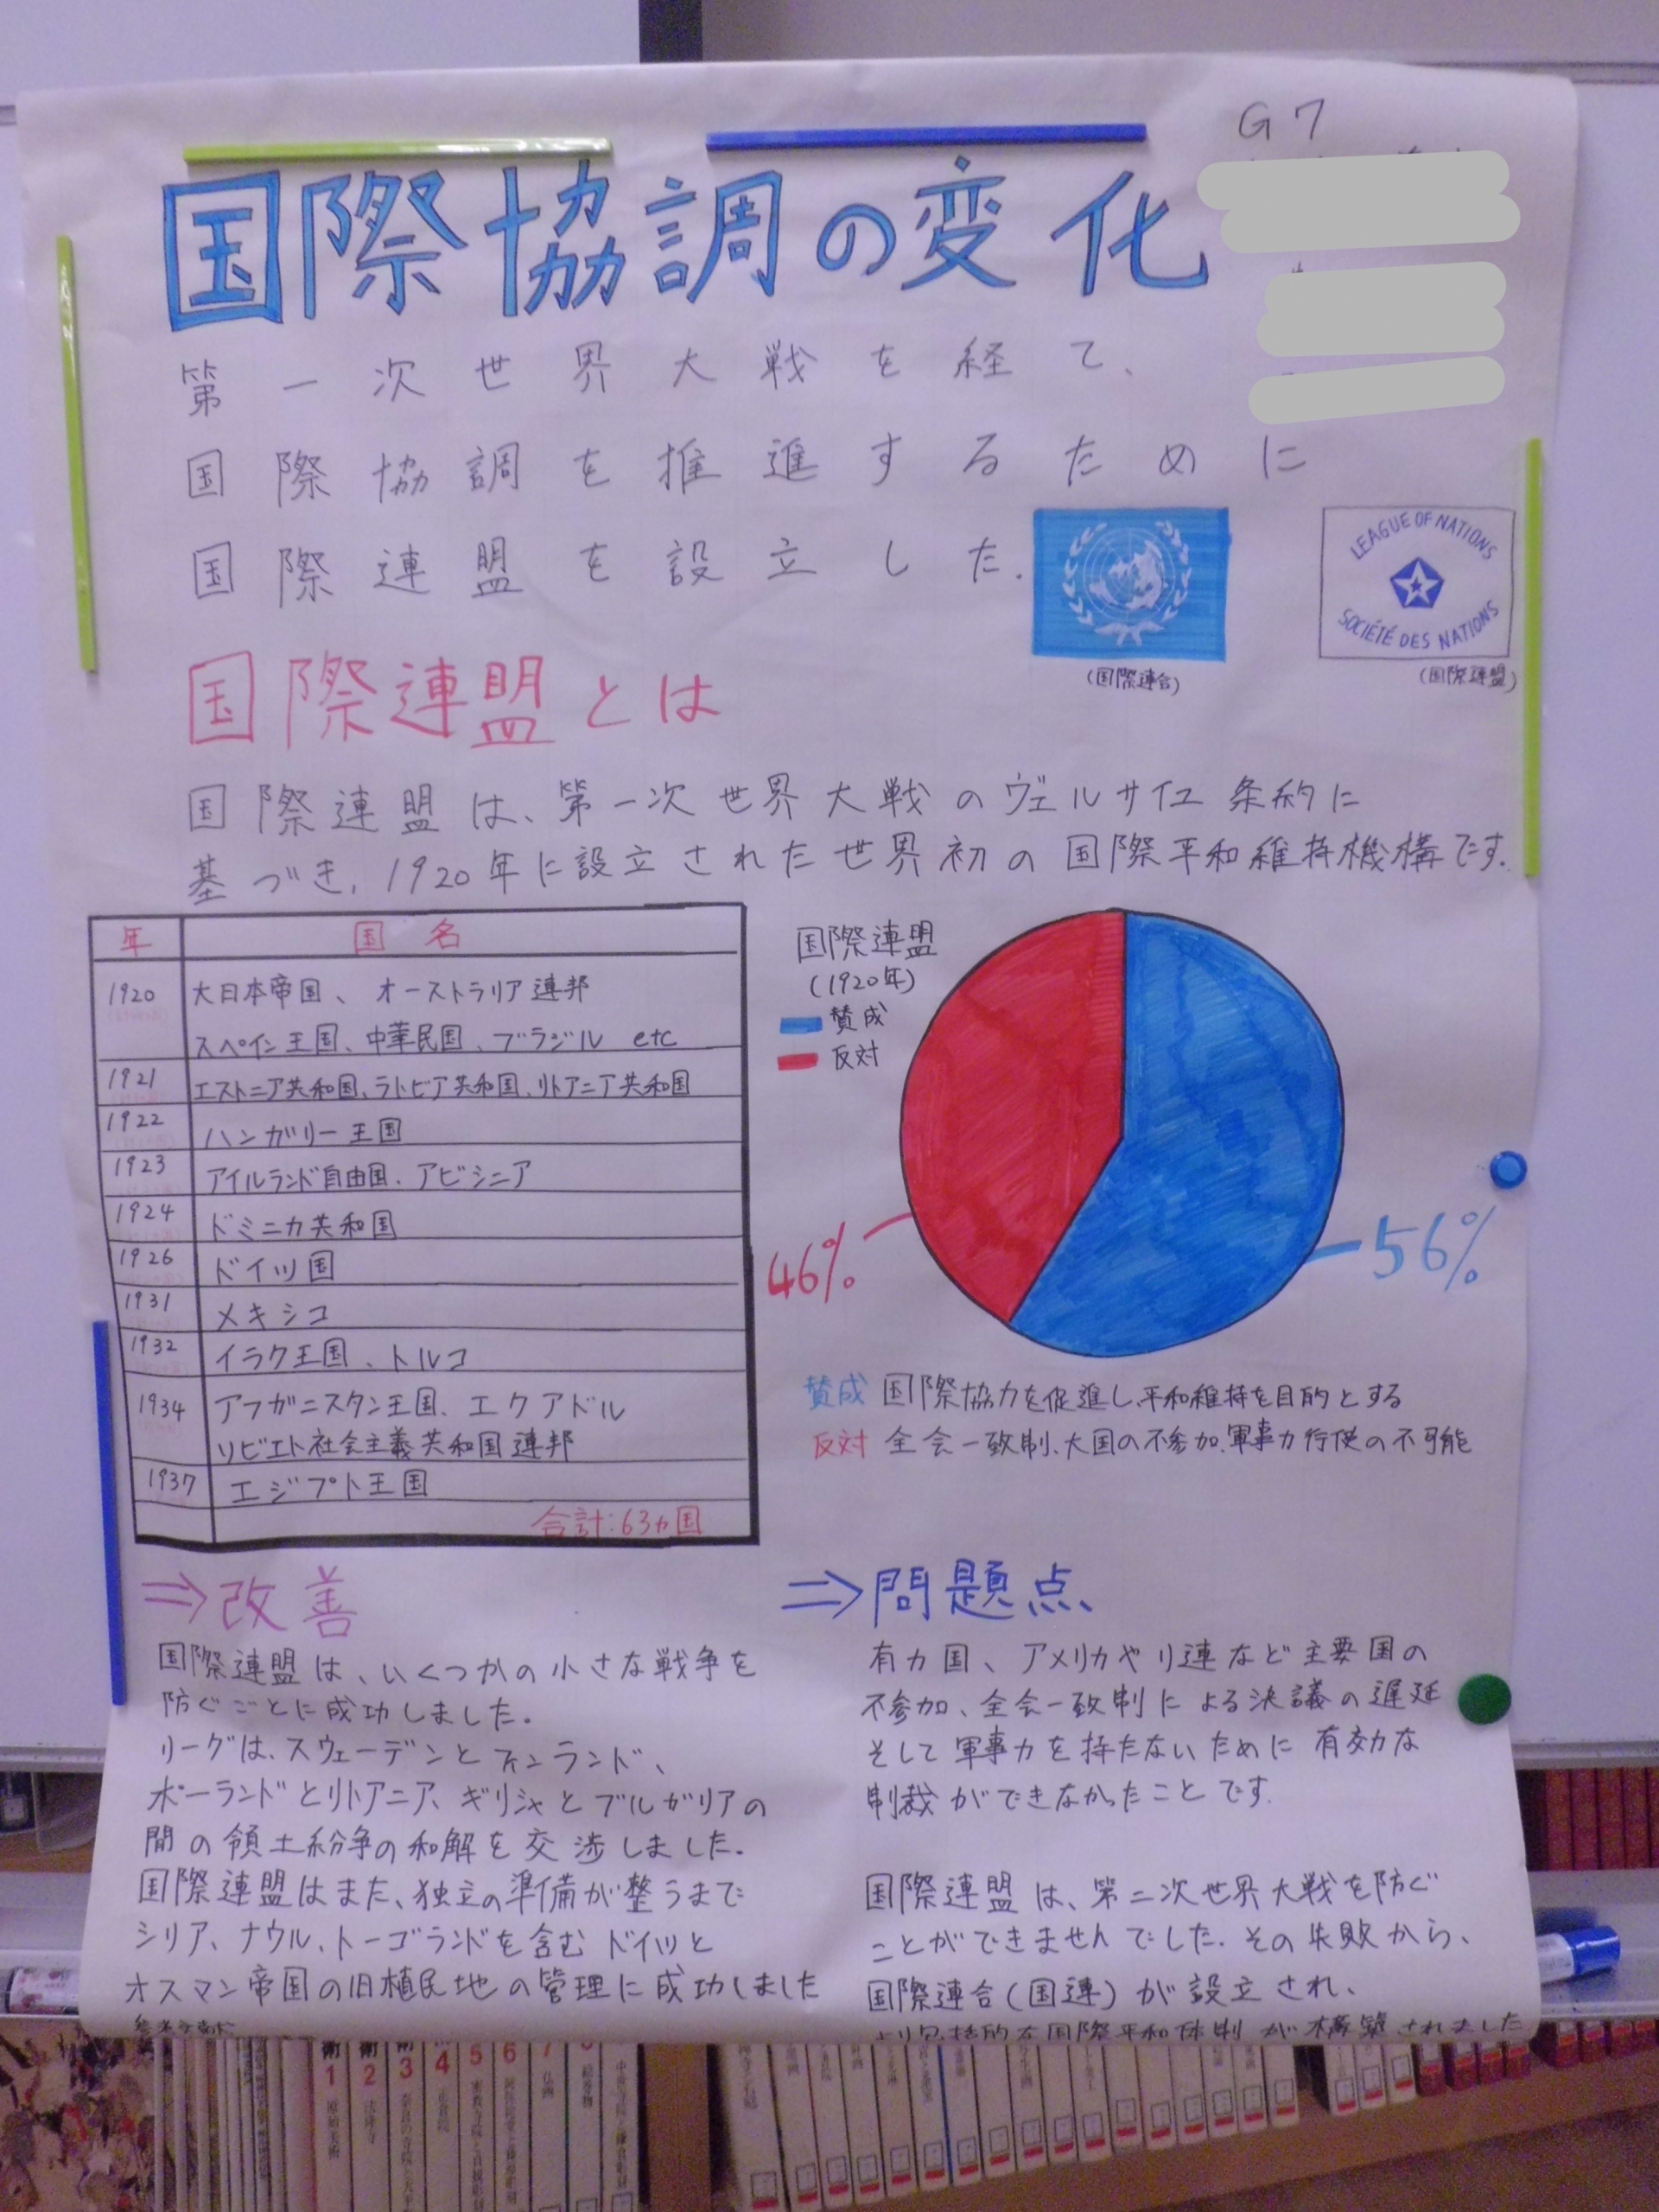 G7
国際協調の変化
第一次世界大戦を経て、
国際協調を推進するために
国際連盟を設立した.
LEAGUE OF NATIONS
SOCIÉTÉ DES NATIONS
(国際連合)
(国際連盟)
国際連盟とは
国際連盟は、第一次世界大戦のヴェルサイユ条約に
基づき、1920年に設立された世界初の国際平和維持機構です.
年 国名
1920 大日本帝国、オーストラリア連邦
スペイン王国、中華民国、ブラジル etc
1921 エストニア共和国、ラトビア共和国、リトアニア共和国
1922 ハンガリー王国
1923 アイルランド自由国、アビシニア
1924 ドミニカ共和国
1926 ドイツ国
1931 メキシコ
1932 イラク王国、トルコ
1934 アフガニスタン王国、エクアドル
ソビエト社会主義共和国連邦
1937 エジプト王国
合計:63ヵ国
国際連盟
(1920年)
賛成
反対
46%
56%
賛成 国際協力を促進し、平和維持を目的とする
反対 全会一致制、大国の不参加、軍事力行使の不可能
⇒改善
国際連盟は、いくつかの小さな戦争を
防ぐごとに成功しました.
リーグは、スウェーデンとフィンランド、
ポーランドとリトアニア、ギリシャとブルガリアの
間の領土紛争の和解を交渉しました.
国際連盟はまた、独立の準備が整うまで
シリア、ナウル、トーゴランドを含むドイツと
オスマン帝国の旧植民地の管理に成功しました
参考文献
⇒問題点
有力国、アメリカやソ連など主要国の
不参加、全会一致制による決議の遅延
そして軍事力を持たないために有効な
制裁ができなかったことです.
国際連盟は、第二次世界大戦を防ぐ
ことができませんでした.その失敗から、
国際連合(国連)が設立され、
より包括的な国際平和体制が構築されました
1 原始美術
2 法隆寺
3
4 正倉院
5
6
7 仏画
絵巻物